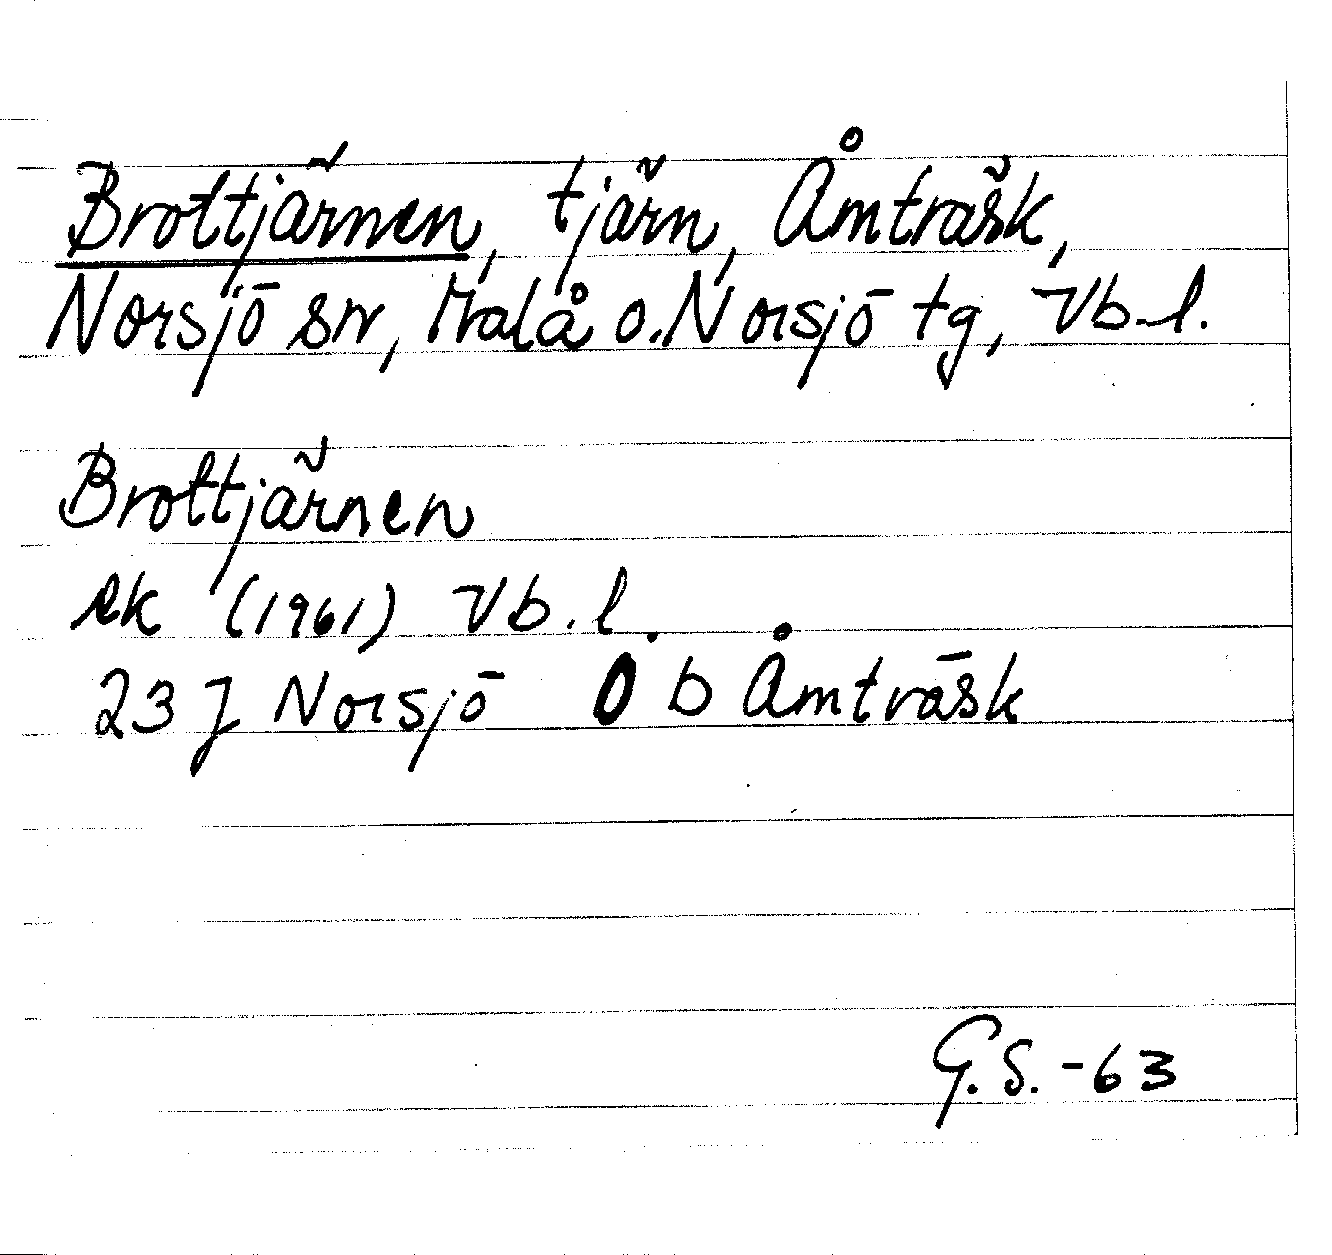 Brottjärnen, tjärn, Åmträsk,
Norsjö sn, Malå o. Norsjö tg, Vb. l.
Brottjärnen
ek (1961) Vb. l.
23 J Norsjö 0 b Åmträsk
G. S. -63